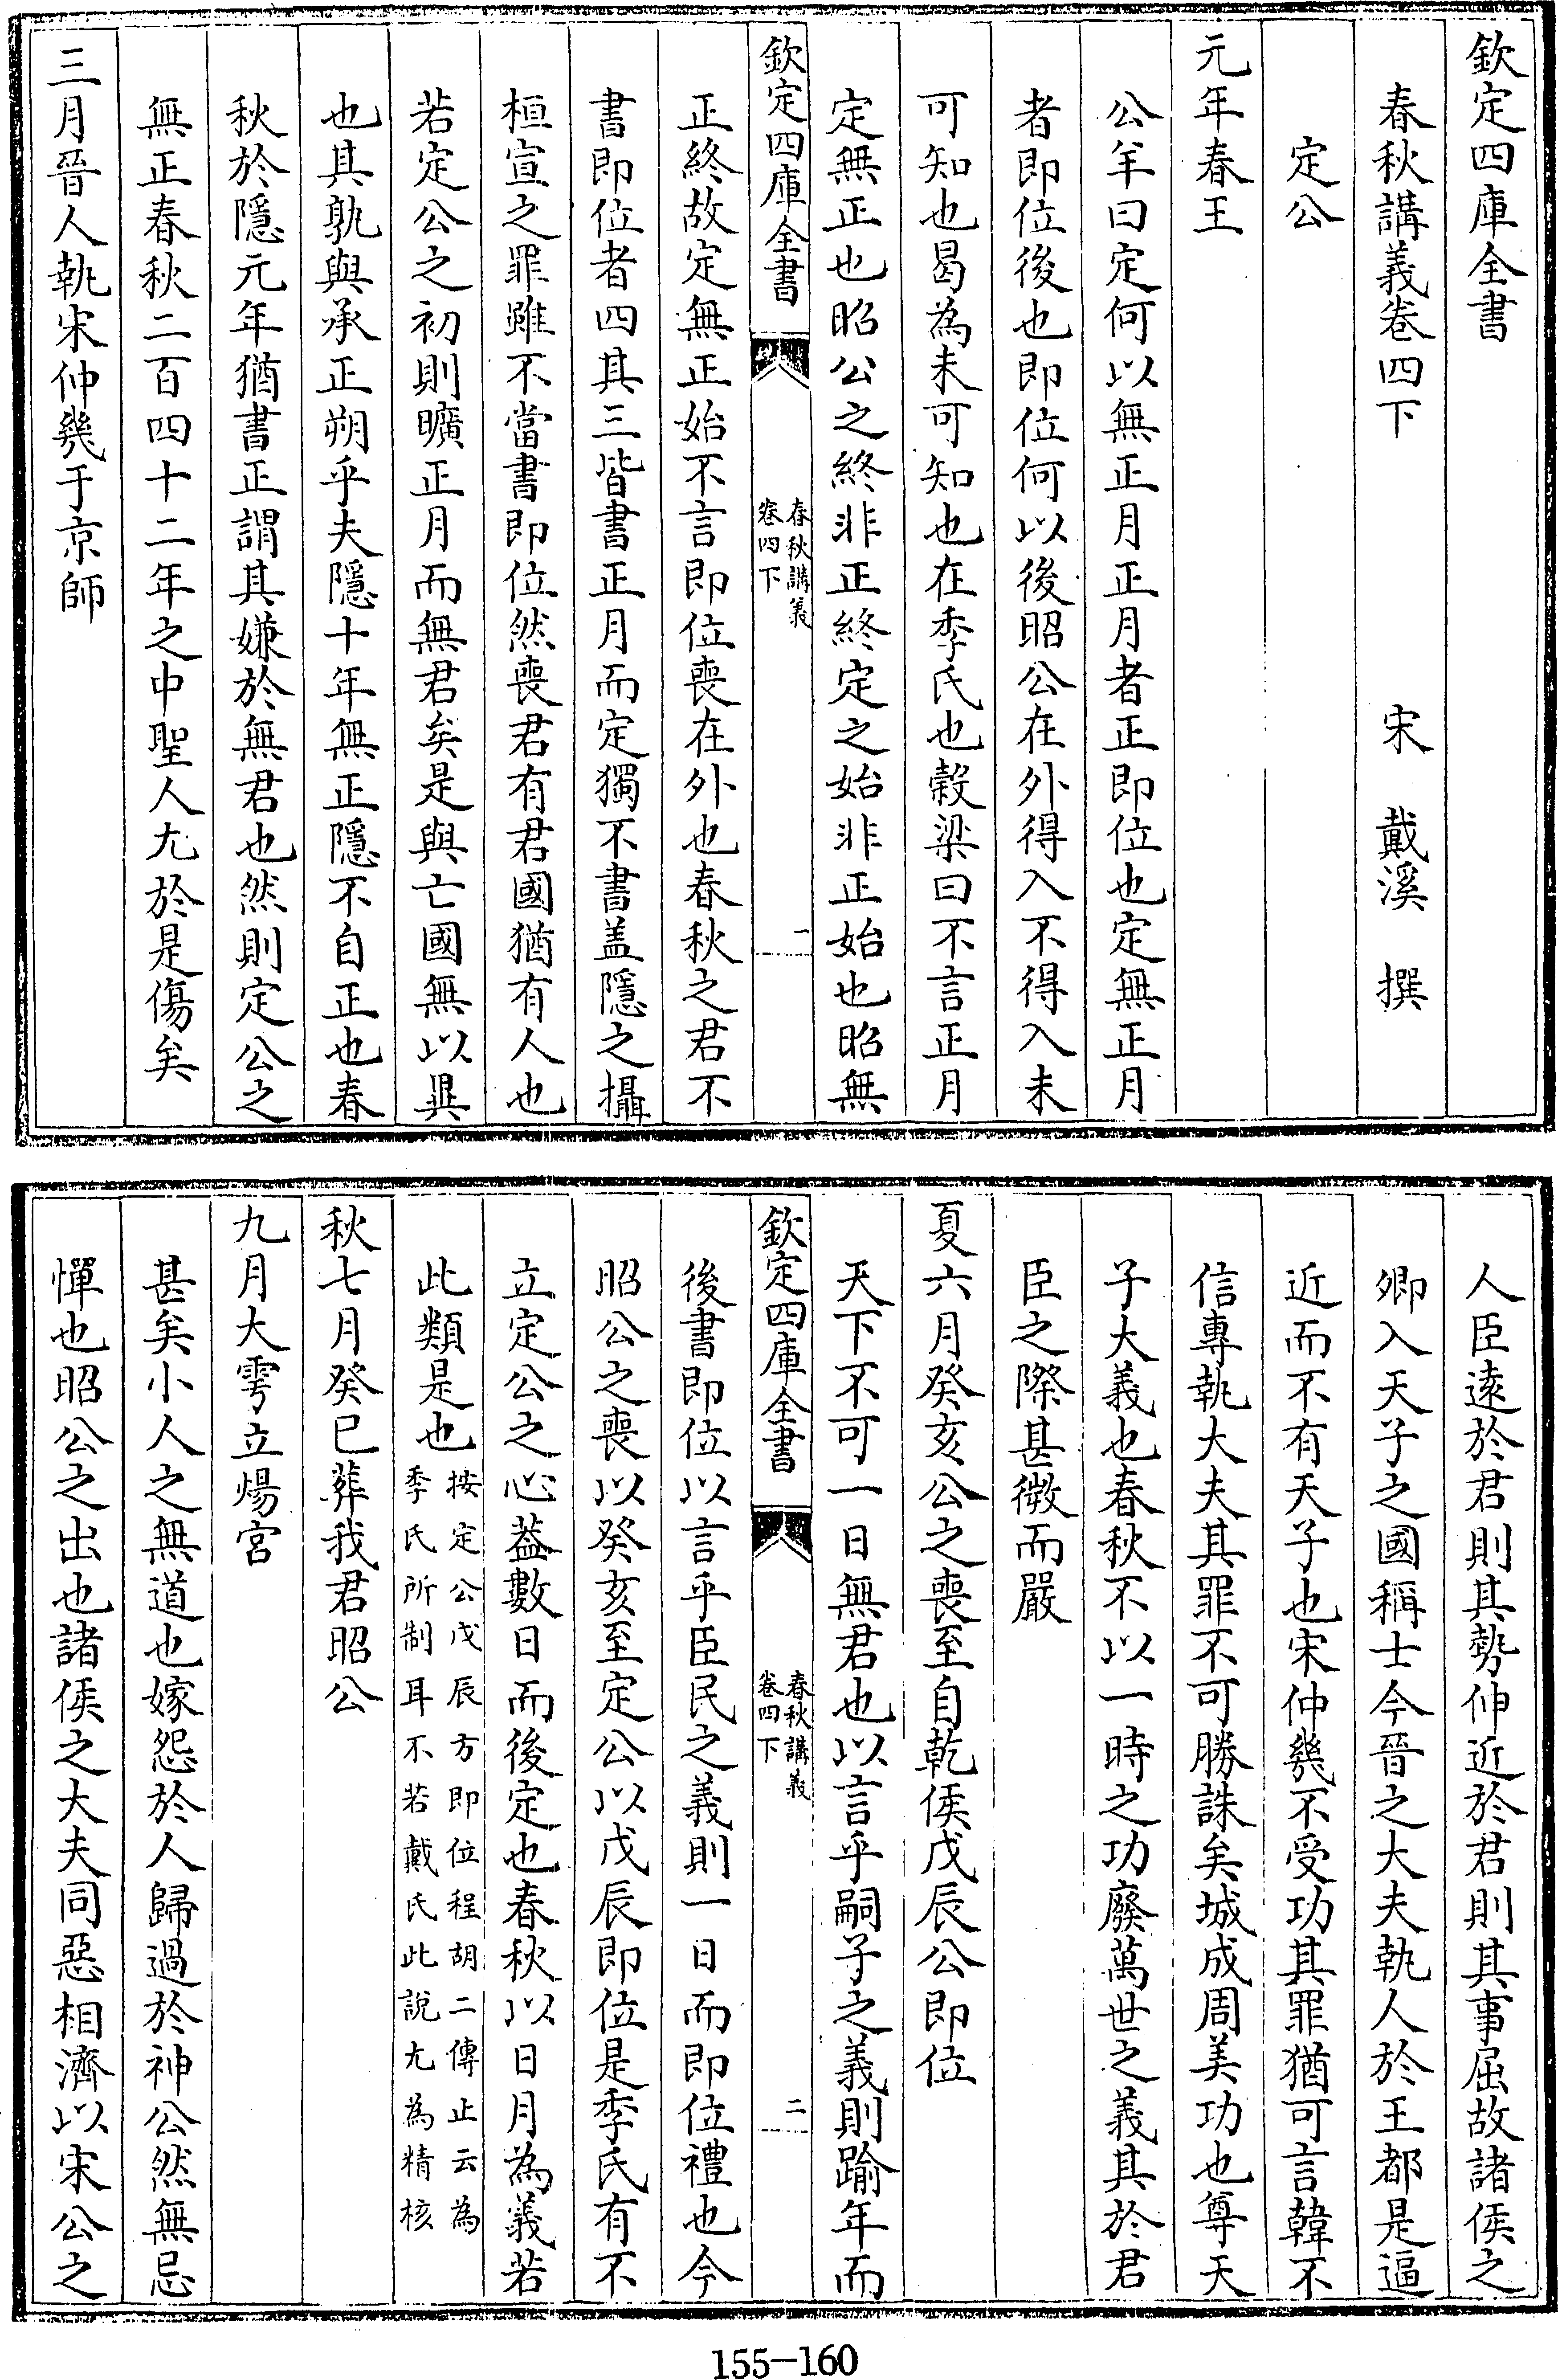 欽定四庫全書
春秋講義卷四下
宋　戴溪　撰
定公
元年春王
公羊曰定何以無正月正月者正即位也定無正月
者即位後也即位何以後昭公在外得入不得入未
可知也曷為未可知也在季氏也穀梁曰不言正月
定無正也昭公之終非正終定之始非正始也昭無
欽定四庫全書
春秋講義
卷四下
一
正終故定無正始不言即位喪在外也春秋之君不
書即位者四其三皆書正月而定獨不書盖隱之攝
桓宣之罪雖不當書即位然喪君有君國猶有人也
若定公之初則曠正月而無君矣是與亡國無以異
也其孰與承正朔乎夫隱十年無正隱不自正也春
秋於隱元年猶書正謂其嫌於無君也然則定公之
無正春秋二百四十二年之中聖人尢於是傷矣
三月晉人執宋仲幾于京師
人臣遠於君則其勢伸近於君則其事屈故諸侯之
卿入天子之國稱士今晉之大夫執人於王都是逼
近而不有天子也宋仲幾不受功其罪猶可言韓不
信專執大夫其罪不可勝誅矣城成周美功也尊天
子大義也春秋不以一時之功廢萬世之義其於君
臣之際甚微而嚴
夏六月癸亥公之喪至自乾侯戊辰公即位
天下不可一日無君也以言乎嗣子之義則踰年而
欽定四庫全書
春秋講義
卷四下
二
後書即位以言乎臣民之義則一日而即位禮也今
昭公之喪以癸亥至定公以戊辰即位是季氏有不
立定公之心葢數日而後定也春秋以日月為義若
此類是也按定公戊辰方即位程胡二傳止云為
季氏所制耳不若戴氏此說尢為精核
秋七月癸巳葬我君昭公
九月大雩立煬宮
甚矣小人之無道也嫁怨於人歸過於神公然無忌
憚也昭公之出也諸侯之大夫同惡相濟以宋公之
155-160